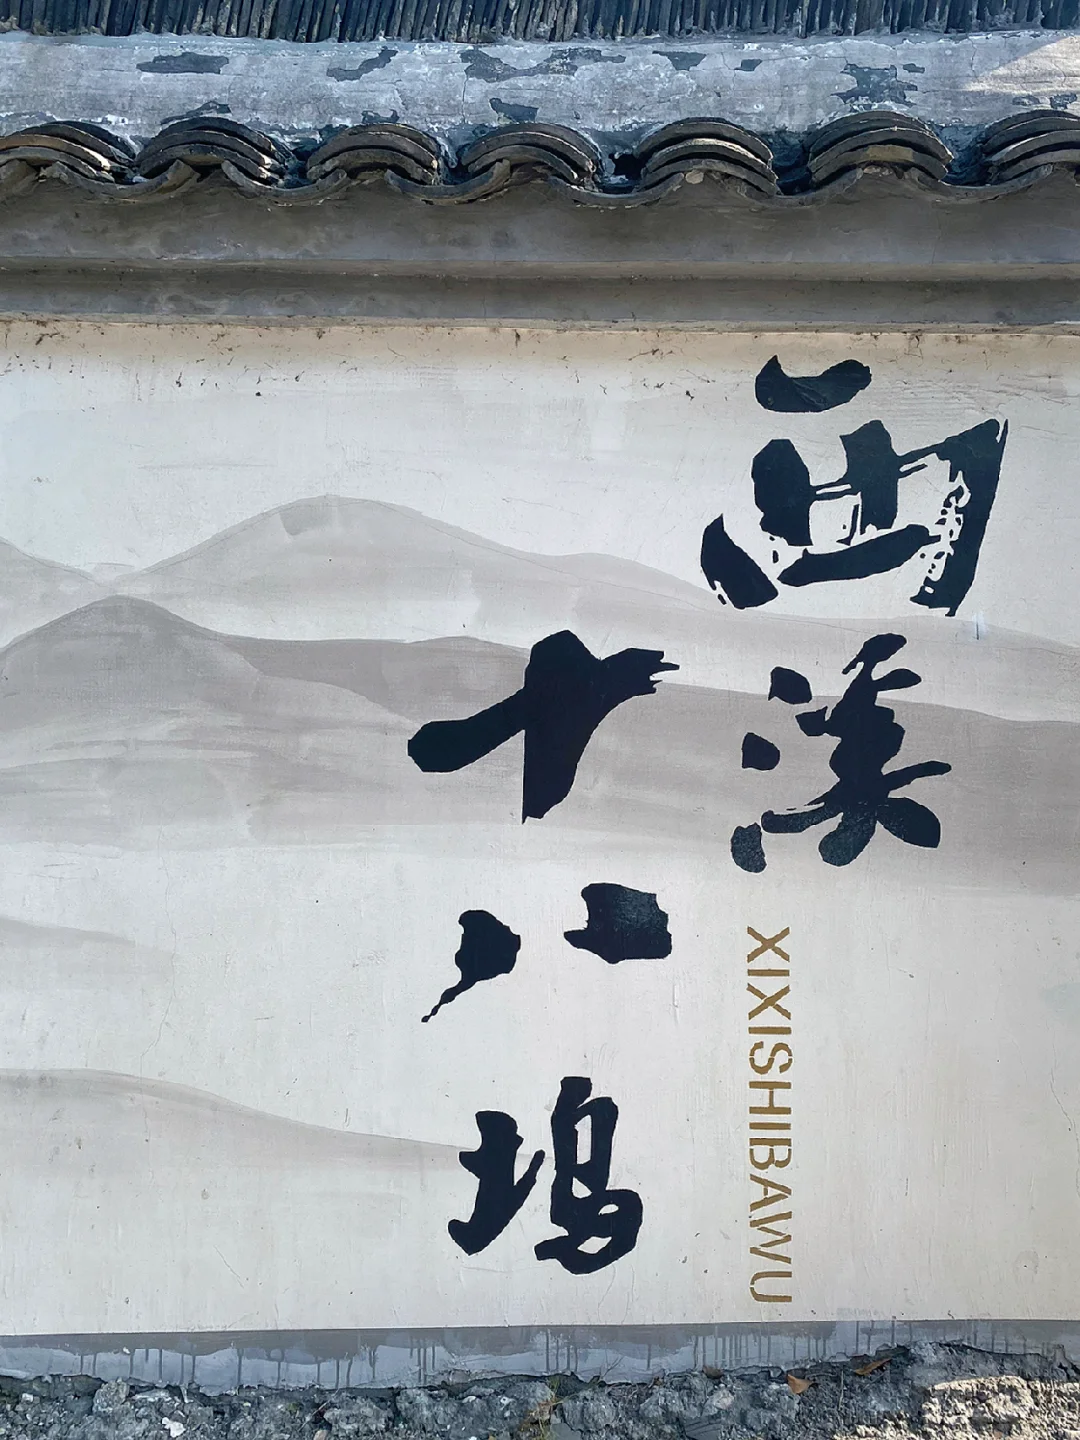 西溪
十八坞
XIXISHIBAWU